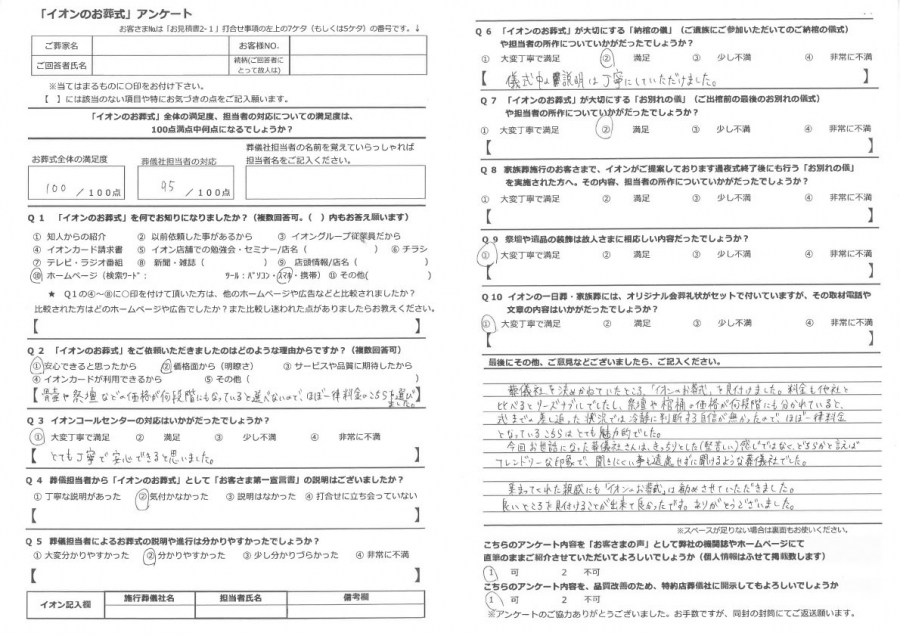 「イオンのお葬式」アンケート
お客さま№は「お見積書2-１」打合せ事項の左上の7ケタ（もしくは5ケタ）の番号です。↓
ご葬家名 お客様NO.
ご回答者氏名 続柄(ご回答者にとって故人は)
※当てはまるものに○印をお付け下さい。
【 】には該当のない項目や特にお気づきの点をご記入願います。
「イオンのお葬式」全体の満足度、担当者の対応についての満足度は、
100点満点中何点になるでしょうか？
お葬式全体の満足度 葬儀社担当者の対応 葬儀社担当者の名前を覚えていらっしゃれば
担当者名をご記入ください。
100 ／100点 95 ／100点
Ｑ１ 「イオンのお葬式」を何でお知りになりましたか？（複数回答可。( ) 内もお答え願います）
① 知人からの紹介 ② 以前依頼した事があるから ③ イオングループ従業員だから
④ イオンカード請求書 ⑤ イオン店舗での勉強会・セミナー/店名 ( ) ⑥ チラシ
⑦ テレビ・ラジオ番組 ⑧ 新聞・雑誌 ( ) ⑨ 店頭情報/店名 ( )
⑩ ホームページ（検索ﾜｰﾄﾞ： ﾂｰﾙ：ﾊﾟｿｺﾝ・ｽﾏﾎ・携帯） ⑪ その他( )
★ Ｑ1の④～⑧に○印を付けて頂いた方は、他のホームページや広告などと比較されましたか？
比較された方はどのホームページや広告でしたか？また比較し迷われた点がありましたらお教えください。
【 】
Ｑ２ 「イオンのお葬式」をご依頼いただきましたのはどのような理由からですか？（複数回答可）
①安心できると思ったから ②価格面から（明瞭さ） ③ サービスや品質に期待したから
④ イオンカードが利用できるから ⑤ その他 ( )
【骨壺や祭壇などの価格が何段階にもなっていると選べないので、ほぼ一律料金のこちらを選びました。】
Ｑ３ イオンコールセンターの対応はいかがだったでしょうか？
① 大変丁寧で満足 ② 満足 ③ 少し不満 ④ 非常に不満
【 とても丁寧で安心できると思いました。 】
Ｑ４ 葬儀担当者から「イオンのお葬式」として「お客さま第一宣言書」の説明はございましたか？
① 丁寧な説明があった ②気付かなかった ③ 説明はなかった ④ 打合せに立ち会っていない
【 】
Ｑ５ 葬儀担当者によるお葬式の説明や進行は分かりやすかったでしょうか？
① 大変分かりやすかった ②分かりやすかった ③ 少し分かりづらかった ④ 非常に不満
【 】
イオン記入欄 施行葬儀社名 担当者氏名 備考欄
Ｑ６ 「イオンのお葬式」が大切にする「納棺の儀」（ご遺族にご参加いただいてのご納棺の儀式）
や担当者の所作についていかがだったでしょうか？
① 大変丁寧で満足 ② 満足 ③ 少し不満 ④ 非常に不満
【 儀式中の説明は丁寧にしていただけました。 】
Ｑ７ 「イオンのお葬式」が大切にする「お別れの儀」（ご出棺前の最後のお別れの儀式）
や担当者の所作についていかがだったでしょうか？
① 大変丁寧で満足 ② 満足 ③ 少し不満 ④ 非常に不満
【 】
Ｑ８ 家族葬施行のお客さまで、イオンがご提案しております通夜式終了後にも行う「お別れの儀」
を実施された方へ。その内容、担当者の所作についていかがだったでしょうか？
① 大変丁寧で満足 ② 満足 ③ 少し不満 ④ 非常に不満
【 】
Ｑ９ 祭壇や遺品の装飾は故人さまに相応しい内容だったでしょうか？
① 大変丁寧で満足 ② 満足 ③ 少し不満 ④ 非常に不満
【 】
Ｑ10 イオンの一日葬・家族葬には、オリジナル会葬礼状がセットで付いていますが、その取材電話や
文章の内容はいかがだったでしょうか？
① 大変丁寧で満足 ② 満足 ③ 少し不満 ④ 非常に不満
【 】
最後にその他、ご意見などございましたら、ご記入ください。
葬儀社を決めかねていたところ、「イオンのお葬式」を見付けました。料金も他社と
比べるとリーズナブルでしたし、祭壇や棺桶の価格が何段階にも分かれていると、
式までの差し迫った状況では冷静に判断する自信が無かったので、ほぼ一律料金
となっているこちらはとても魅力的でした。
今回お世話になった葬儀社さんは、きっちりとした（堅苦しい）感じではなく、どちらかと言えば
フレンドリーな印象で、聞きにくい事も遠慮せずに聞けるような葬儀社でした。
集まってくれた親戚にも「イオンのお葬式」は勧めさせていただきました。
良いところを見付けることが出来て良かったです。ありがとうございました。
※スペースが足りない場合は裏面もお使いください。
こちらのアンケート内容を「お客さまの声」として弊社の機関誌やホームページにて
直筆のままご紹介させていただいてよろしいでしょうか（個人情報はふせて掲載致します）
1 可 2 不可
こちらのアンケート内容を、品質改善のため、特約店葬儀社に開示してもよろしいでしょうか
1 可 2 不可
※アンケートのご協力ありがとうございました。お手数ですが、同封の封筒にてご返送願います。